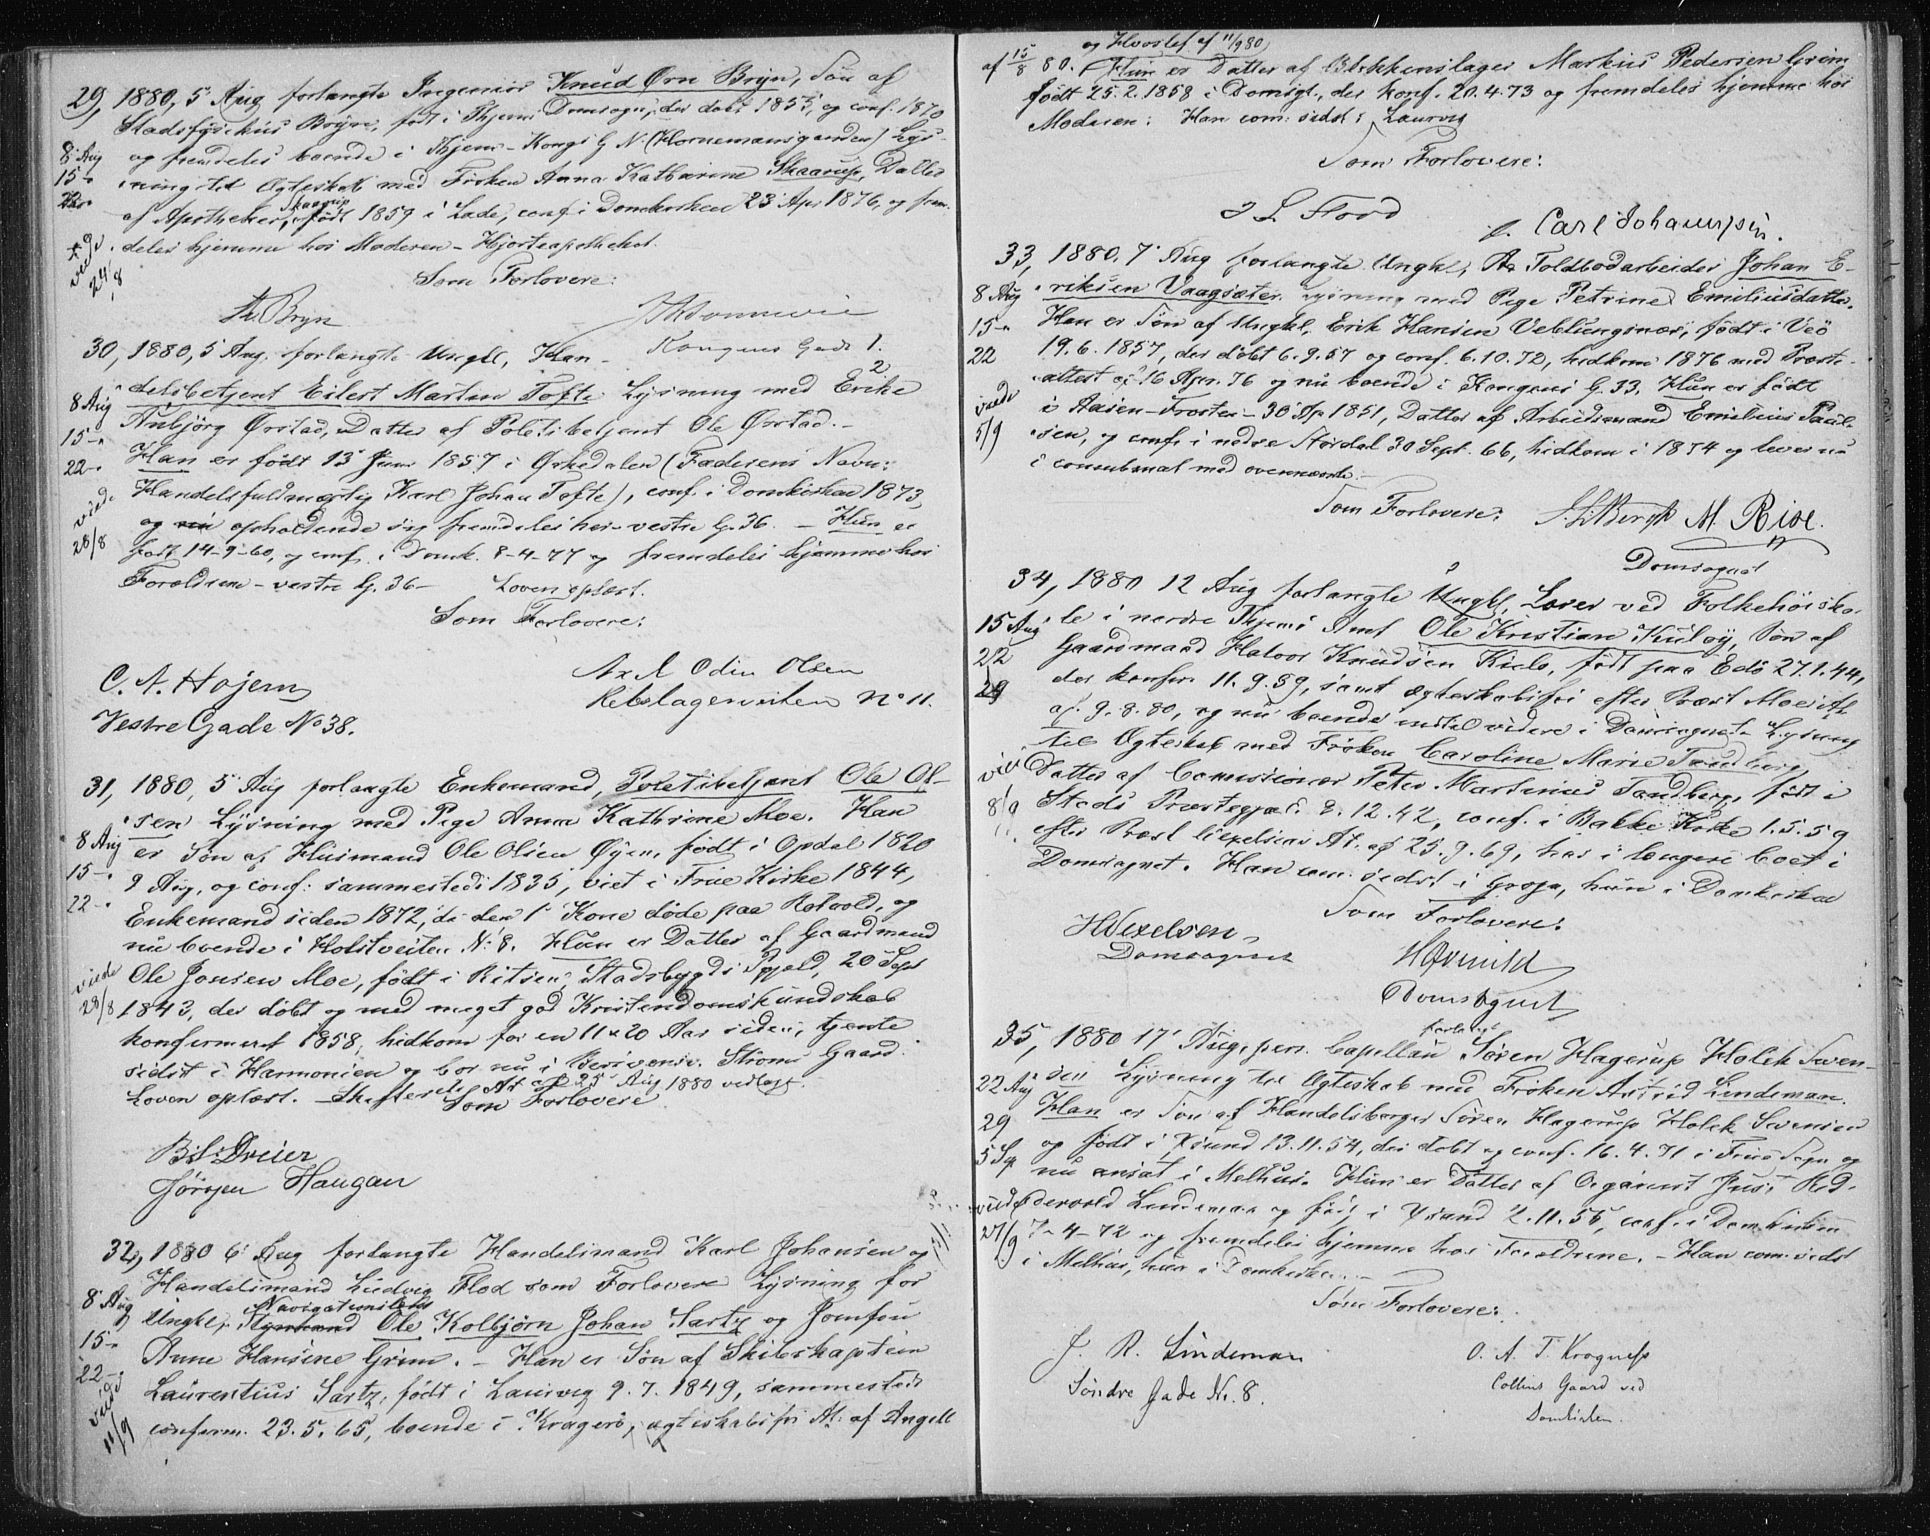 29, 1880, 5 Aug forlangte Ingeniør Knud Ørn Bryn, Søn af
Stadsfysikus Bryn, født i Thjems Domsogn, der døbt 1855, og conf. 1870
8 Aug og fremdeles boende i Thjem - Kongs G N (Hornemansgaarden) Lys-
15 - ning til Ægteskab med Frøken Anna Katharine Skaarup, Datter
22 - af Apotheker Skaarup, født 1859 i Lade, conf. i Domkirken 23 Apr 1876, og frem-
viede deles hjemme hos Moderen - Hjorteapotheket.
24/8
Som Forlovere:
Th. Bryn
Kongens Gade 1.
30, 1880, 5 Aug. forlangte Ungkl, Han-
delsbetjent Eilert Martin Tofte Lysning med Erike
8 Aug Anbjörg Ørstad, Datter af Politibetjent Ole Ørstad.-
15 -
22 - Han er født 13 Juni 1857 i Ørkedalen (Faderens Navn:
viede Handelsfuldmægtig Karl Johan Tofte), conf. i Domkirken 1873,
og opholdende sig fremdeles her - vestre G. 36. - Hun er
28/8 født 14-9-60, og conf. i Domk. 8-4-77 og fremdeles hjemme hos
Forældrene - vestre G. 36 - Loven oplæst.
Som Forlovere:
C. A. Hojem
Vestre Gade No 38.
Odin Olsen
Rebslagerveiten No 11.
31, 1880, 5 Aug forlangte Enkemand, Politibetjent Ole Ol-
sen Lysning med Pige Anna Kathrine Moe. Han
8 Aug er Søn af Husmand Ole Olsen Øyen, født i Opdal 1820
15 - 9 Aug, og conf: sammesteds 1835, viet i Frue Kirke 1844,
22 - Enkemand siden 1872, da den 1ste Kone døde paa Rotvold, og
nu boende i Holstveiten No 8. Hun er Datter af Gaardmand
viede Ole Jonsen Moe, født i Ritsen, Stadsbygds Pgjeld, 20 Sept
28/8 1843, der døbt og med meget god Kristendomskundskab
konfirmeret 1858, hidkom for en 11 x 20 Aar siden, tjente
sidst i Harmonien og bor nu i Strøms Gaard.
Loven oplæst. - Skifterets At af 25 Aug 1880 vedlagt.
Som Forlovere
B. S. Dreier
Jørgen Haugan
32, 1880 6 Aug forlangte Handelsmand Karl Johansen og
Handelsmand Ludvig Flod som Forlovere Lysning for
8 Aug Ungkl, Navigationslærer Ole Kolbjørn Johan Sartz og Jomfru
15 - Anne Hansine Grim. - Han er Søn af Skibskaptein
22 - Laurentius Sartz, født i Laurvig 9.7.1849, sammesteds
viede 11/9 conferm. 23.5.65, boende i Kragerø, ægteskabsfri At. af Angell
og Hvoslef af 11/9 80)
af 15/8 80. Hun er Datter af Blikkenslager Markus Pedersen Grim
født 25.2.1858 i Domsgt., der konf. 20.4.73 og fremdeles hjemme hos
Moderen: Han com. sidst i Laurvig
Som Forlovere:
L Flood
Carl Johannesen.
33, 1880, 7 Aug forlangte Ungkl, Toldbodarbeider Johan E-
8 Aug riksen Vaagsæter Lysning med Pige Petrine Emiliusdatter.
15 - Han er Søn af Ungkl, Erik Hansen Veblungsnæs, født i Veö
22 19.6.1857, der døbt 6.9.57 og conf. 6.10.72, hidkom 1876 med Præste-
attest af 16 Apr. 76 og nu boende i Kongens G. 33. Hun er født
viede i Aasen - Frosten - 30 Ap 1851, Datter af Arbeidsmand Emilius Paul-
5/9 sen, og conf. i nedre Størdal 30 Sept. 66, hidkom i 1874 og lever nu
i concubinat med ovennævnte.
Som Forlovere: Bergh M. Rise.
Domsognet
34, 1880 12 Aug forlangte Ungkl, Lærer ved Folkehöisko-
15 Aug le i nordre Thjems Amt Ole Kristian Kulöy, Søn af
22 Gaardmand Halvor Knudsen født paa Edö 27.1.44,
29 der konfir. 11.9.59, samt ægteskabsfri efter Præst Moes At
af 9.8.80, og nu boende indtil videre i Domsognet Lysning
til Ægteskab med Frøken Caroline Marie Tandberg,
viet Datter af Commissionær Peter Martinius Tandberg, født i
8/9 Stods Præstegjæld 2.12.42, conf. i Bakke Kirke 1.5.59
efter Præst At. af 25.9.69, har i længere boet i
Domsognet. Han com. sidst i hun i Domkirken
Som Forlovere:
H Wexelsen,
Domsognet
H Qvenild
Domsognet
35, 1880 17 Aug. pers. Capellan forlangte Søren Hagerup Holck Sven-
22 Aug sen Lysning til Ægteskab med Frøken Astrid Lindeman.
29 Han er Søn af Handelsborger Søren Hagerup Holck Svensen
5 Sep og født i Xsund 13.11.54, der døbt og conf. 16.4.71 i Frue Sogn og
nu ansat i Melhus. Hun er Datter af Organist Just Rid-
viede dervold Lindeman og født i Xsund 2.11.55, conf. i Domkirken
27/9 7-4-72 og fremdeles hjemme hos Forældrene. - Han com. sidst
i Melhus, hun i Domkirken.
Som Forlovere:
J. R. Lindeman
Söndre Gade Nr. 8.
O. A. T. Krogness
Collins Gaard ved
Domkirken.